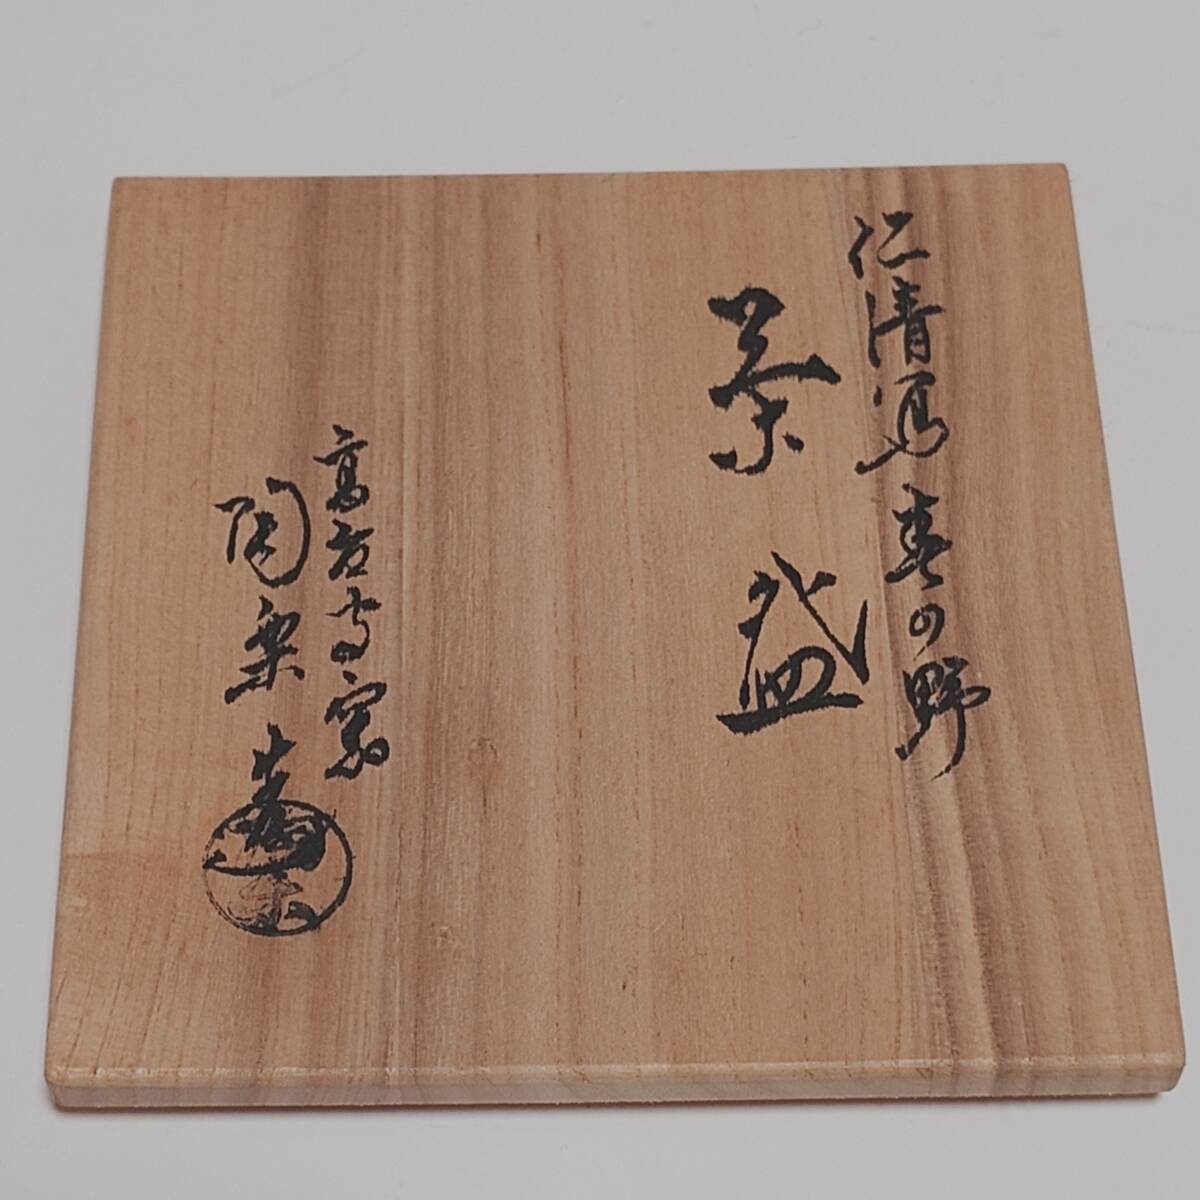 仁清写 春の野
茶盌
高台寺窯
陶楽斎